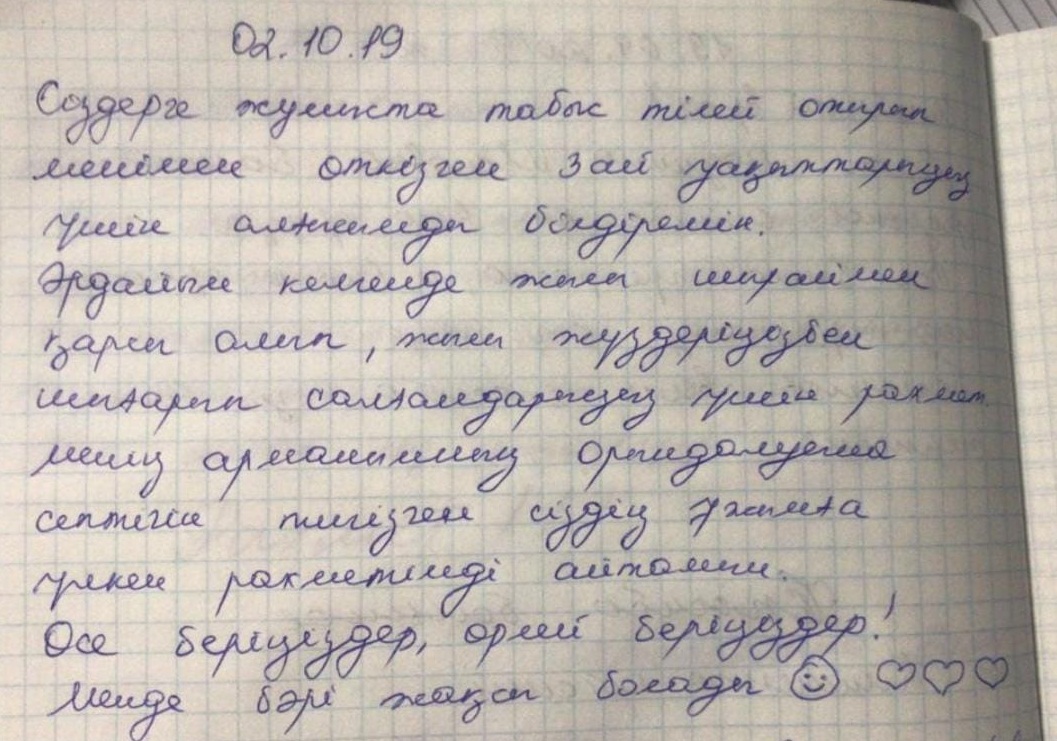 02.10.19
Сіздерге жумыста табыс тілей отырып
менімен откізген 3 ай уақыттарыңыз
үшін алғымды білдіремін.
Әрдайым келгенде жылы шыраймен
қарсы алып, жылы жүздеріңізбен
шығарып салғандарыңыз үшін рахмет.
Менің арманымның орындалуына
септігін тигізген сіздің ұжымға
үлкен рахметімді айтамын.
Өсе беріңіздер, өрлей беріңіздер!
Менде бәрі жақсы болады